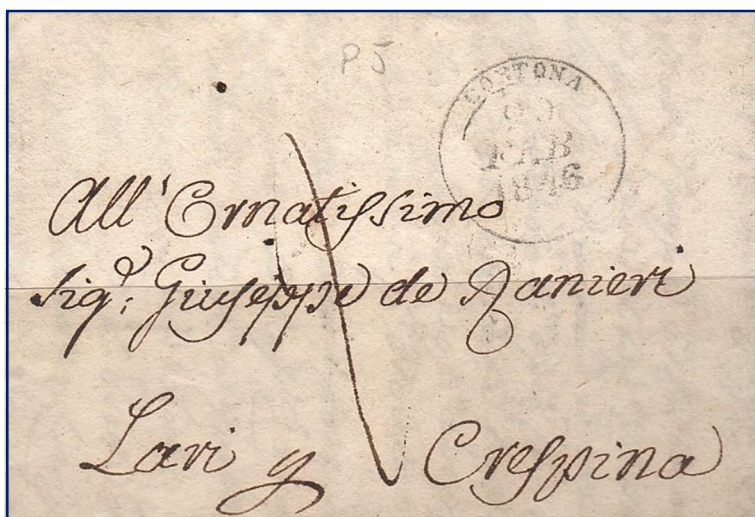 P5
CORTONA
FEB
1846
All' Ornatissimo
Sigr. Giuseppe de Ranieri
Lari y Crespina